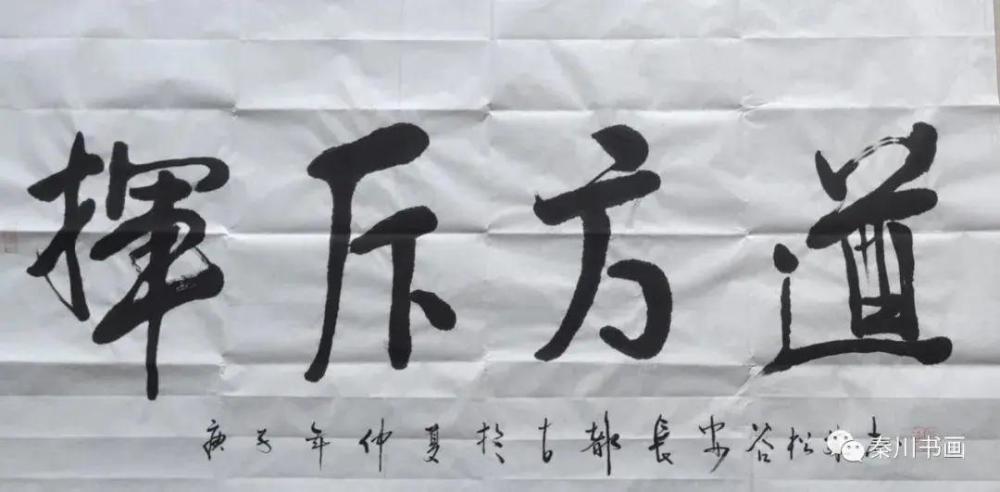 揮斥方遒
庚子年仲夏於古都長安谷松
秦川书画